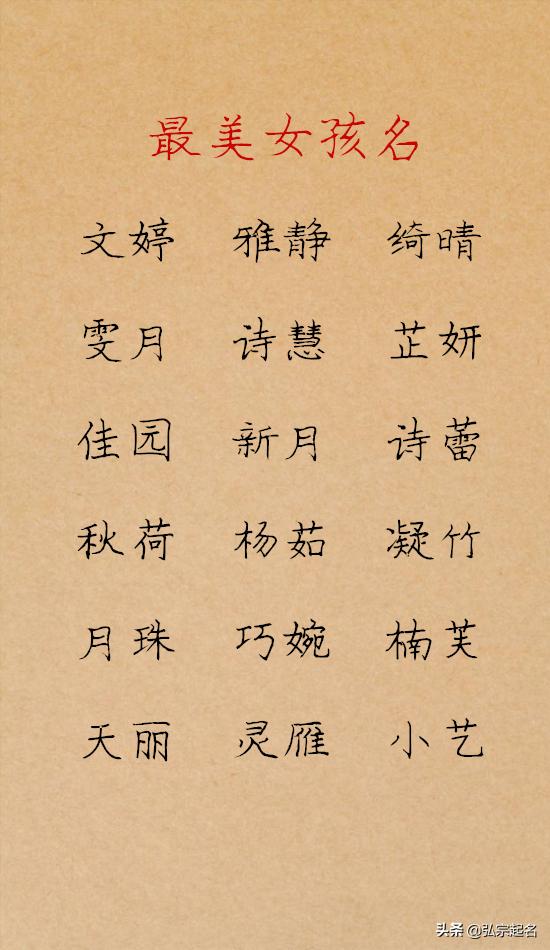 最美女孩名
文婷 雅静 绮晴
雯月 诗慧 芷妍
佳园 新月 诗蕾
秋荷 杨茹 凝竹
月珠 巧婉 楠芙
天丽 灵雁 小艺
头条 @弘宗起名